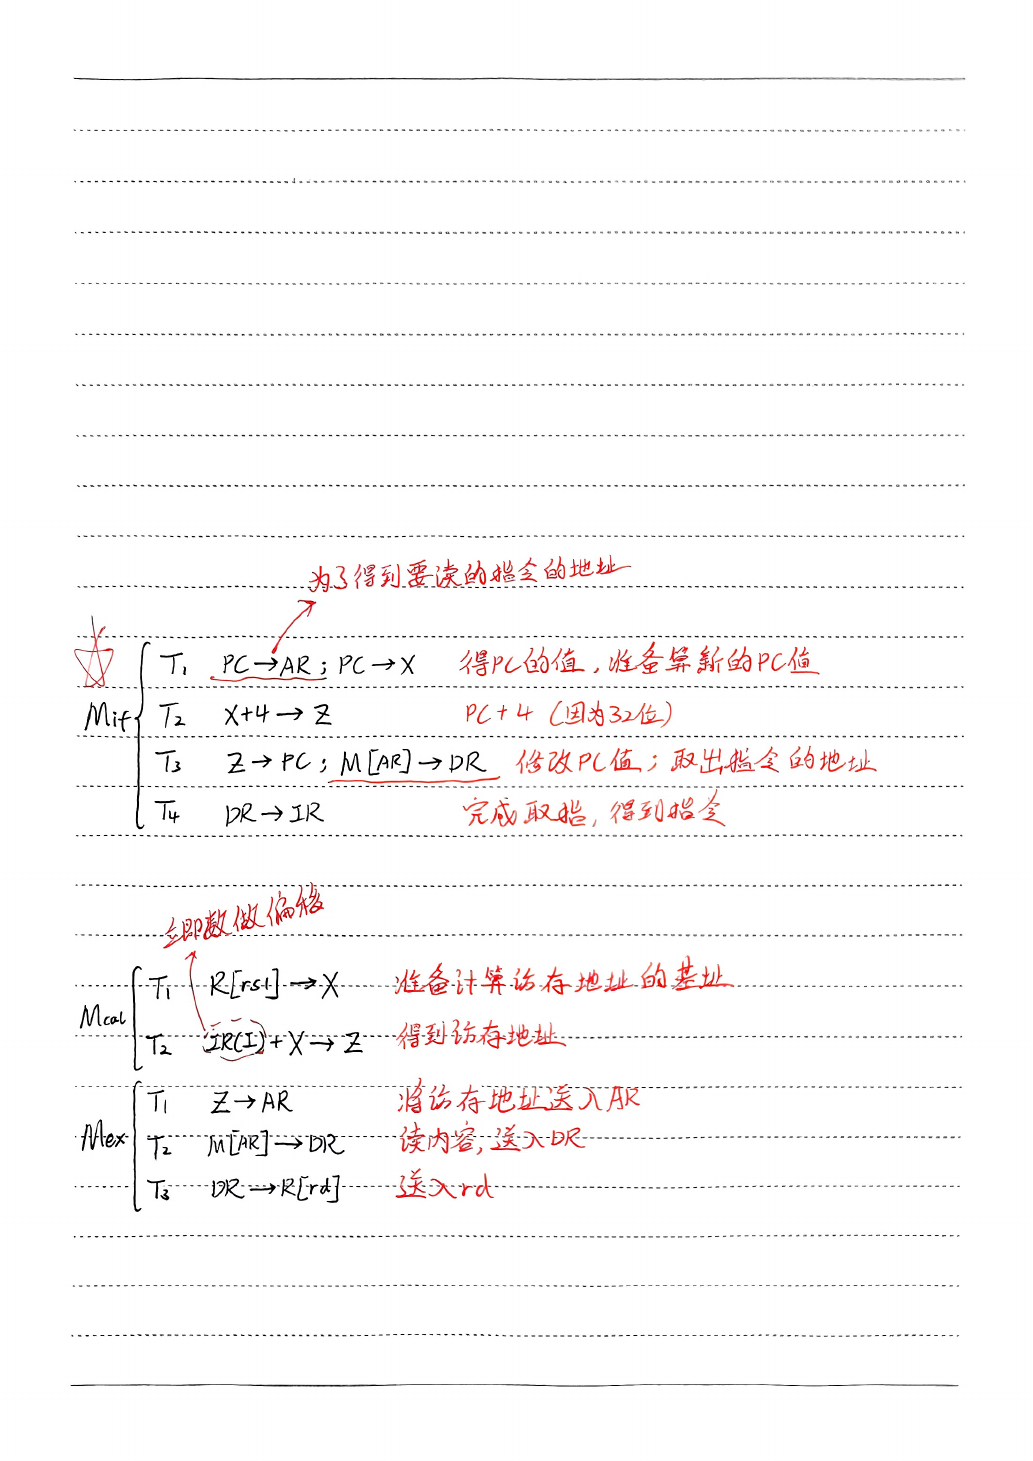 为了得到要读的指令的地址
T₁ PC→AR; PC→X 得PC的值,准备算新的PC值
Mif T₂ X+4→Z PC+4 (因为32位)
T₃ Z→PC; M[AR]→DR 修改PC值;取出指令的地址
T₄ DR→IR 完成取指,得到指令
立即数做偏移
T₁ R[rs1]→X 准备计算访存地址的基址
Mcal
T₂ IR(I)+X→Z 得到访存地址
T₁ Z→AR 将访存地址送入AR
Mex T₂ M[AR]→DR 读内容,送入DR
T₃ DR→R[rd] 送入rd